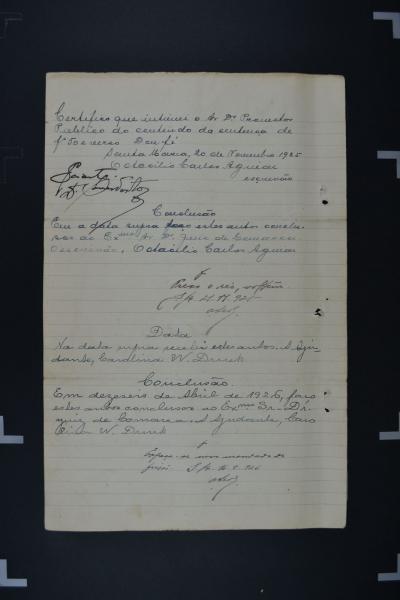 Certifico que intimei o Sr Dr Promotor
Publico do conteúdo da sentença de
fs verso Dou fé
Santa Maria, 20 de Novembro 1925
Octacilio Carlos Aguiar
escrivão
Conclusão
Em a data supra faço estes autos conclu-
sos ao Exmo Sr. Dr. Juiz de Comarca
O escrivão, Octacilio Carlos Aguiar
Preso o réo,
S.M. 21.11.925
Data
Na data supra recebi estes autos. A Aju-
dante, Carolina W. Druck
Conclusão
Em dezesseis de Abril de 1926, faço
estes autos conclusos ao Exmo Sr. Dr.
Juiz de Comarca. A Ajudante, Caro
lina W. Druck
Expeça-se novo mandado de
prisão. S.M. 16.4.926